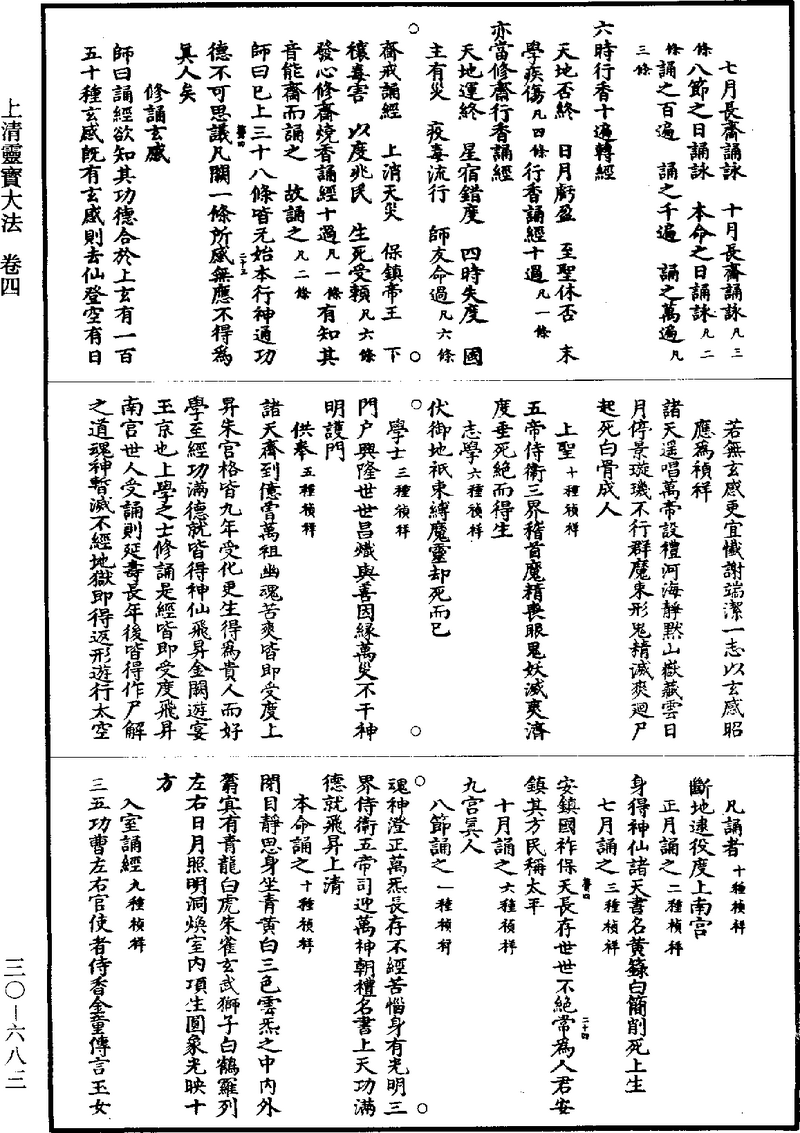 上清靈寶大法　卷四
三〇－六八三
七月長齋誦詠　十月長齋誦詠凡三
條八節之日誦詠　本命之日誦詠凡二
條誦之百遍　誦之千遍　誦之萬遍凡
三條
六時行香十遍轉經
天地否終　日月虧盈　至聖休否　末
學疾傷凡四條行香誦經十過凡一條
亦當修齋行香誦經
天地運終　星宿錯度　四時失度　國
主有災　疫毒流行　師友命過凡六條
齋戒誦經　上消天災　保鎮帝王　下
穰毒害　以度兆民　生死受賴凡六條
發心修齋燒香誦經十過凡一條有知其
音能齋而誦之　故誦之凡二條
師曰已上三十八條皆元始本行神通功
德不可思議凡闕一條所感無應不得為
真人矣
修誦玄感
師曰誦經欲知其功德合於上玄有一百
五十種玄感既有玄感則去仙登空有日
若無玄感更宜懺謝端潔一志以玄感昭
應為禎祥
諸天遥唱萬帝設禮河海靜默山嶽藏雲日
月停景璇璣不行群魔束形鬼精滅爽迴尸
起死白骨成人
上聖十種禎祥
五帝侍衛三界稽首魔精喪眼鬼妖滅爽濟
度垂死絕而得生
志學六種禎祥
伏御地祇束縛魔靈却死而已
學士三種禎祥
門户興隆世世昌熾與善因緣萬災不干神
明護門
供奉五種禎祥
諸天齊到億曾萬祖幽魂苦爽皆即受度上
昇朱宮格皆九年受化更生得為貴人而好
學至經功滿德就皆得神仙飛昇金闕遊宴
玉京也上學之士修誦是經皆即受度飛昇
南宮世人受誦則延壽長年後皆得作尸解
之道魂神暫滅不經地獄即得返形遊行太空
凡誦者十種禎祥
斷地逮役度上南宮
正月誦之二種禎祥
身得神仙諸天書名黃籙白簡削死上生
七月誦之三種禎祥
安鎮國祚保天長存世世不絕常為人君安
鎮其方民稱太平
十月誦之六種禎祥
九宮真人
八節誦之一種禎祥
魂神澄正萬炁長存不經苦惱身有光明三
界侍衛五帝司迎萬神朝禮名書上天功滿
德就飛昇上清
本命誦之十種禎祥
閉目靜思身坐青黃白三色雲炁之中內外
蓊冥有青龍白虎朱雀玄武獅子白鶴羅列
左右日月照明洞煥室內項生圓象光映十
方
入室誦經九種禎祥
三五功曹左右官使者侍香金童傳言玉女